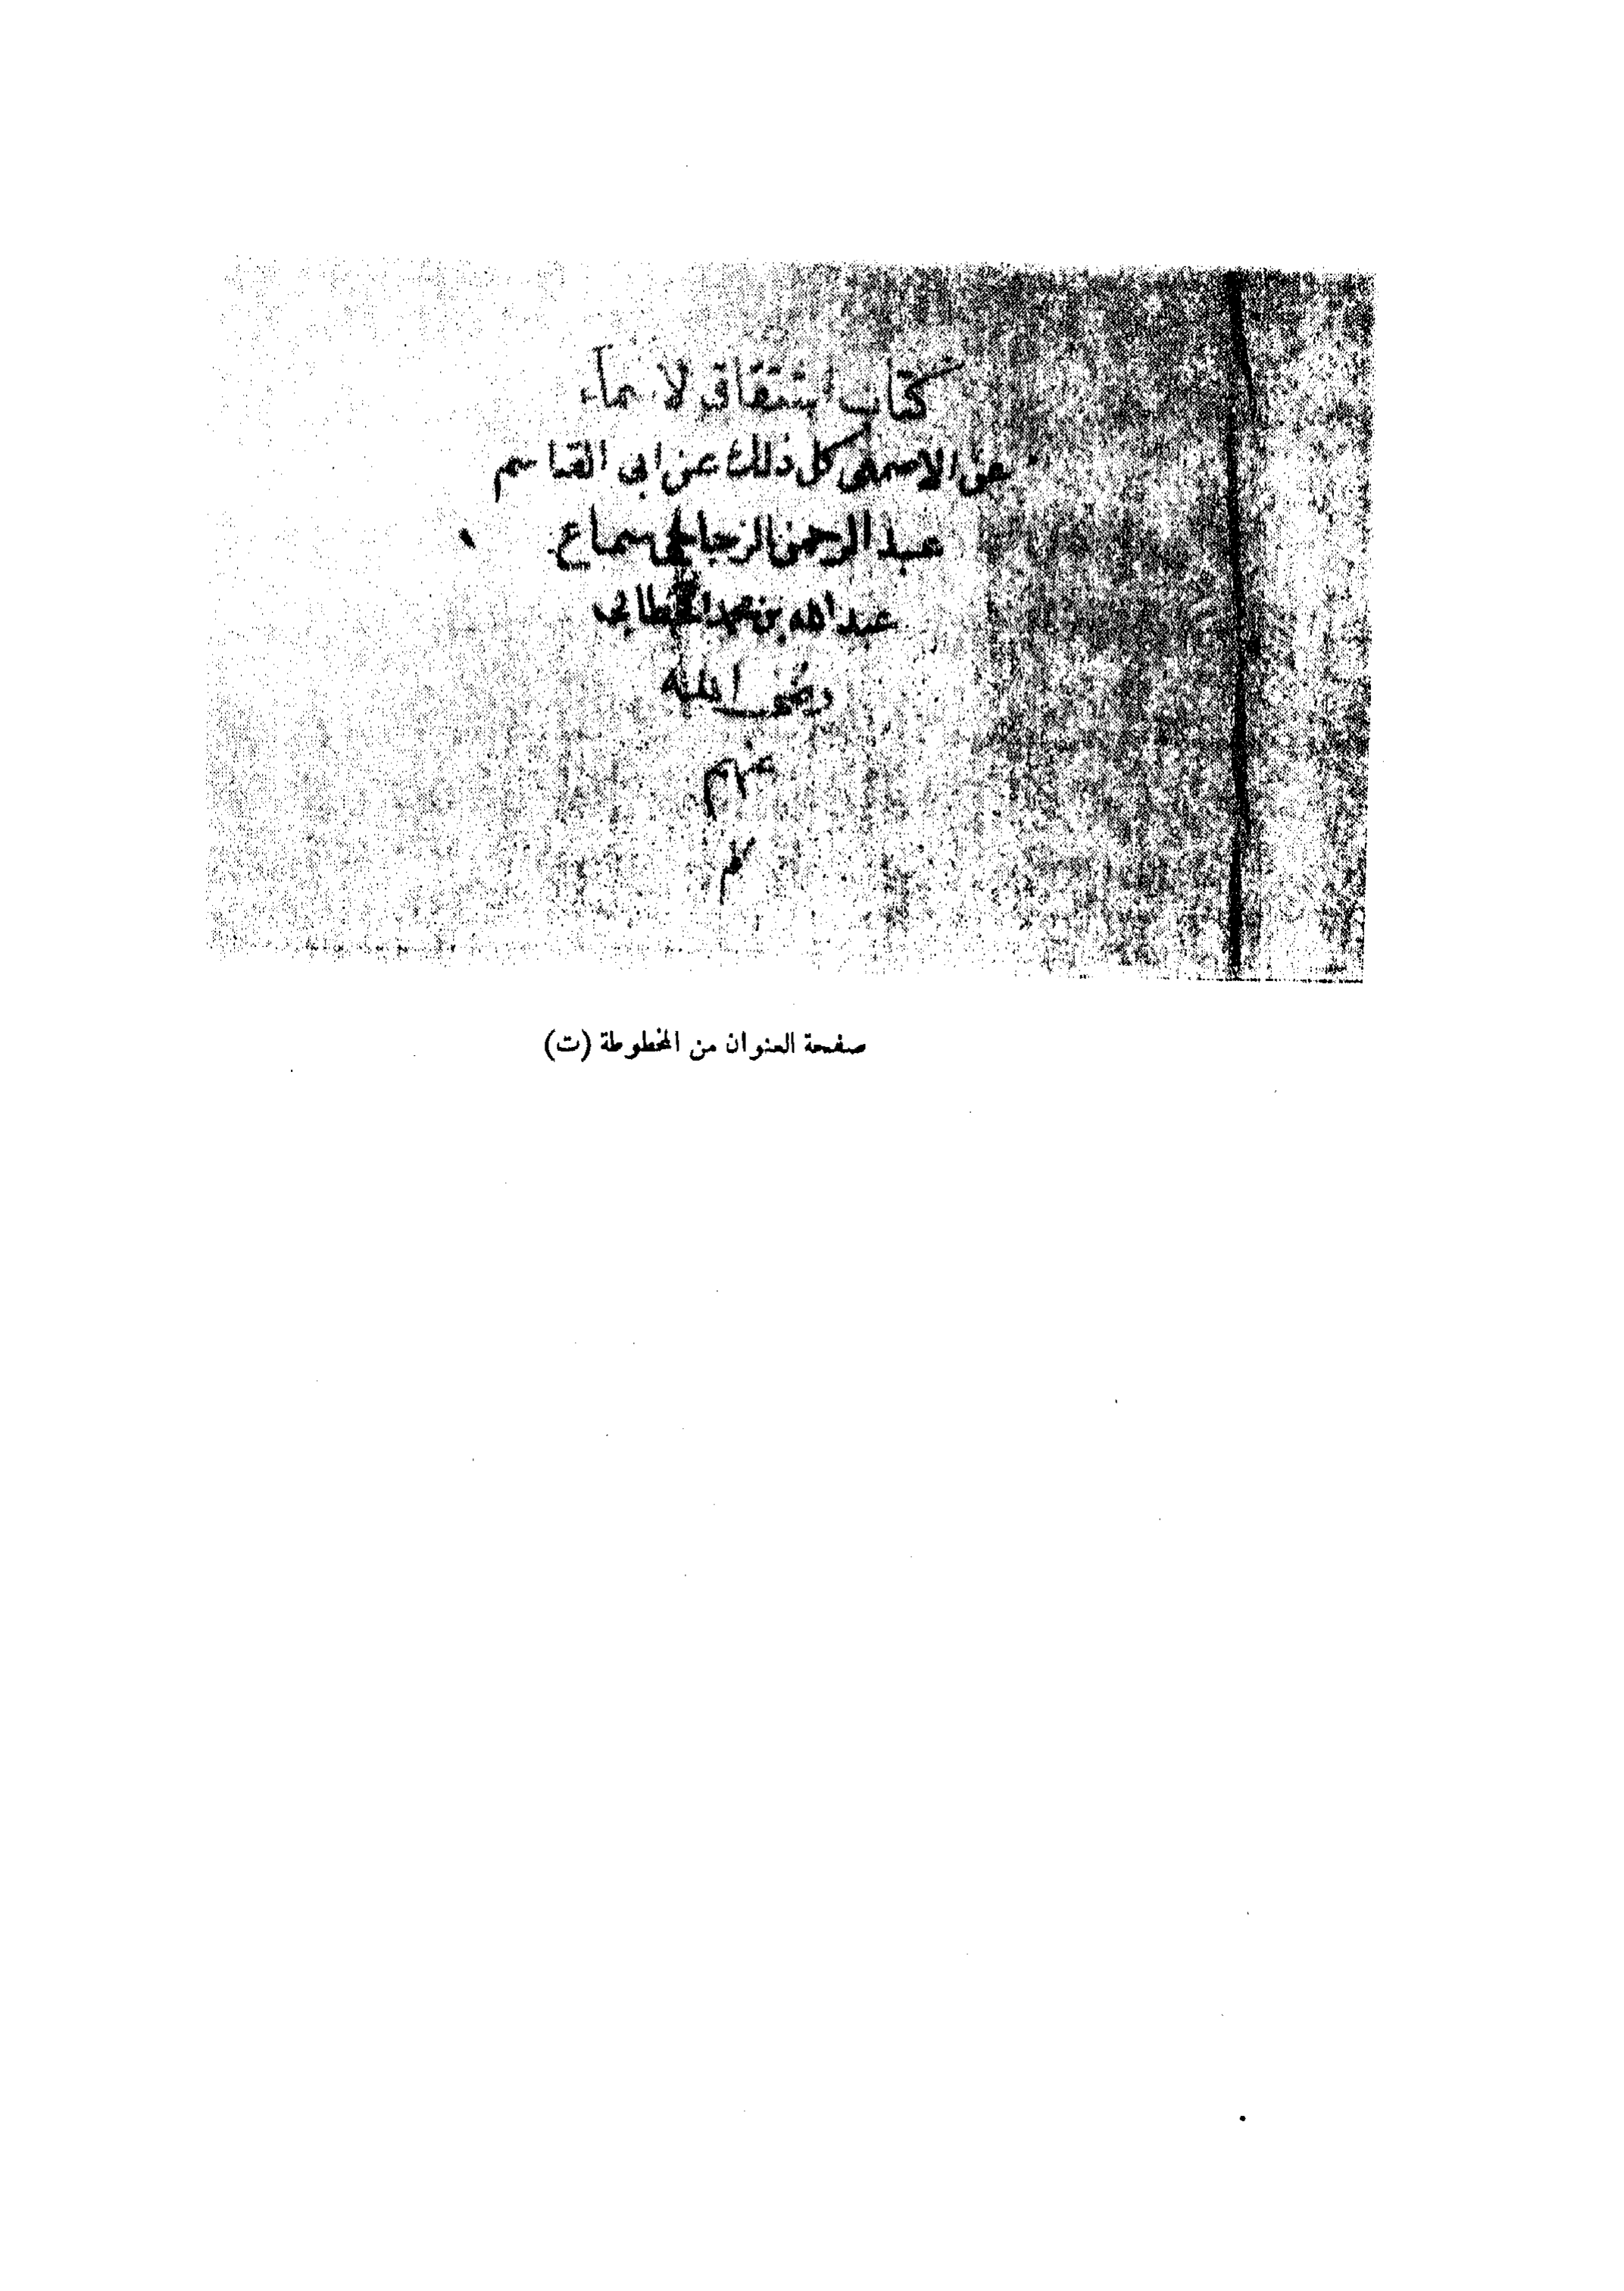 كتاب اشتقاق الاسماء
عن الاصمعى كل ذلك عن ابى القاسم
عبد الرحمن الزجاجى سماع
عبد الله بن محمد الخطابى
رضى الله
عنهم
كلهم
صفحة العنوان من المخطوطة (ت)